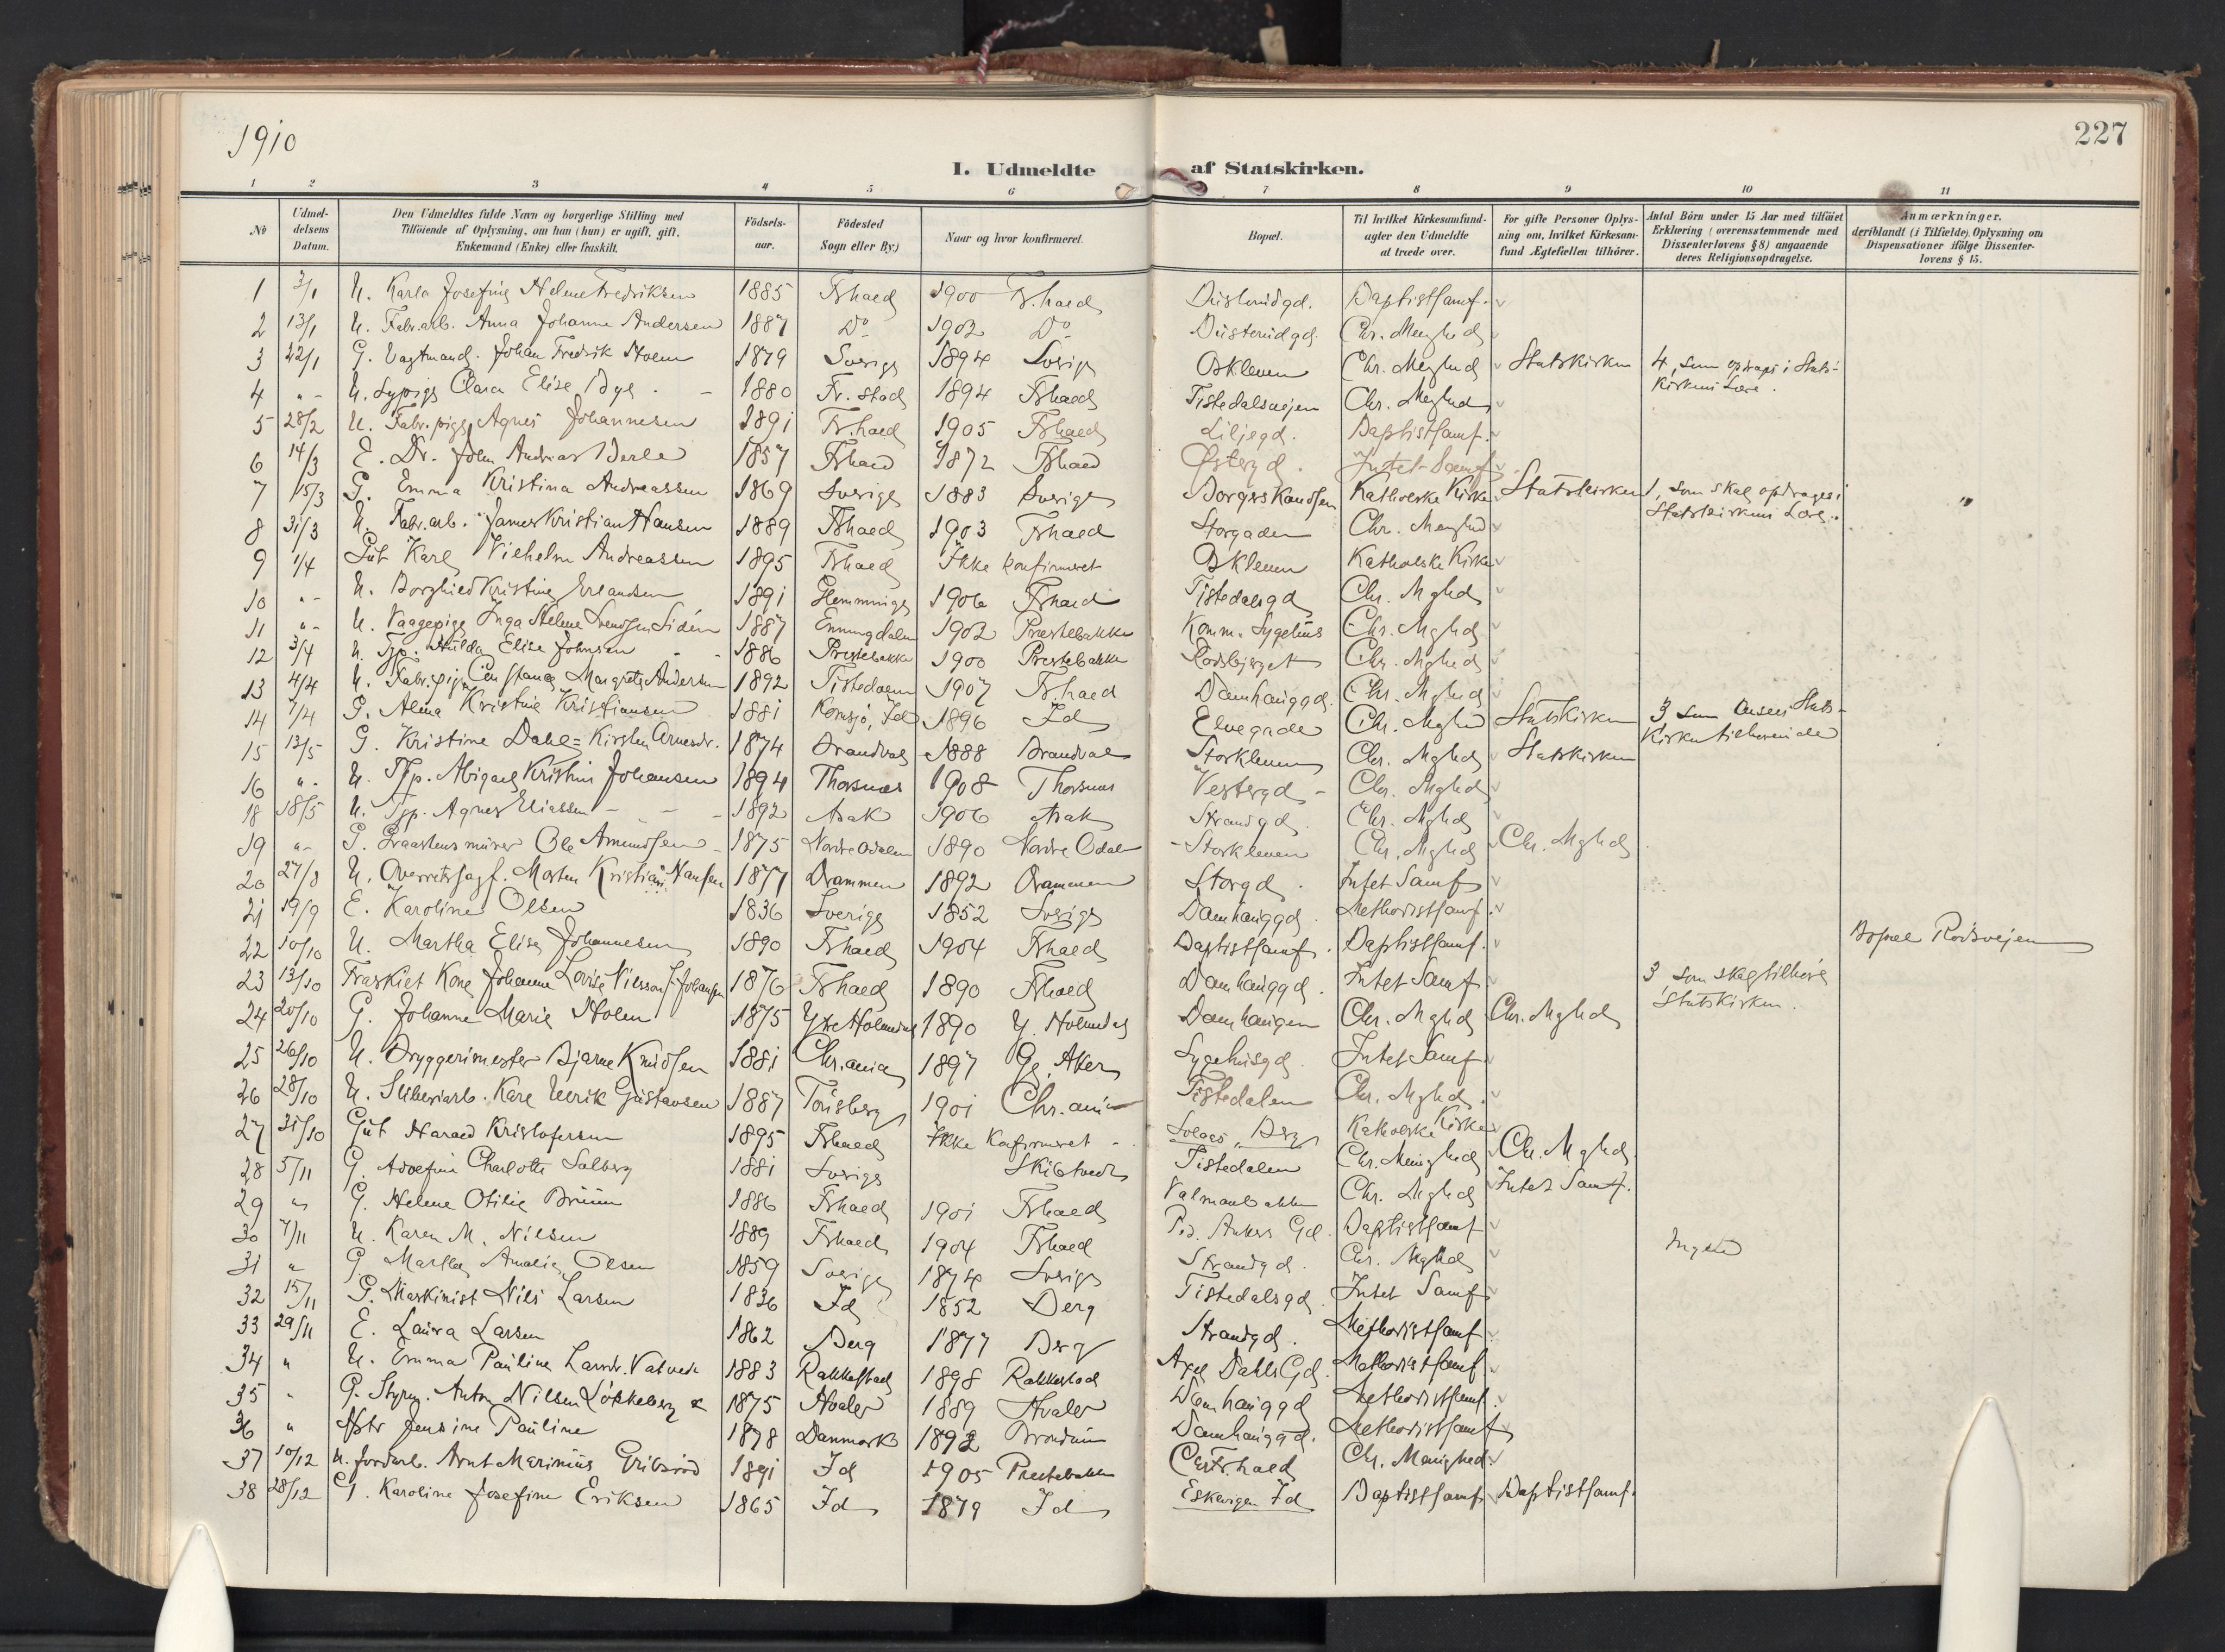 1910
227
I. Udmeldte af Statskirken.
1 2 3 4 5 6 7 8 9 10 11
No
Udmeldelsens Datum.
Den Udmeldtes fulde Navn og borgerlige Stilling med Tilföiende af Oplysning, om han (hun) er ugift, gift, Enkemand (Enke) eller fraskilt.
Födselsaar.
Födested Sogn eller By.)
Naar og hvor konfirmeret.
Bopæl.
Til hvilket Kirkesamfund agter den Udmeldte at træde over.
For gifte Personer Oplysning om, hvilket Kirkesamfund Ægtefællen tilhörer.
Antal Börn under 15 Aar med tilföiet Erklæring (overensstemmende med Dissenterlovens § 8) angaaende deres Religionsopdragelse.
Anmærkninger. deriblandt (i Tilfælde) Oplysning om Dispensationer ifölge Dissenterlovens § 15.
1 3/1 U. Karla Josefine Helene Fredriksen 1885 Frhald 1900 Fr.hald Baptistsamf.
2 13/1 U. Fabr.arb. Anna Johanne Andersen 1887 Do 1902 Do Chr. Menghed
3 22/1 G. Vagtmand. Johan Fredrik Holm 1879 Sverige 1894 Sverige Oskleven Chr. Meghed Statskirken 4, som opdrages i Statskirkens Lære.
4 " - U. Sypige Clara Elise Bye - 1880 Fr.stad 1894 Frhald Tistedalsvejen Chr. Meghed
5 28/2 U. Fabr.pige Agnes Johannesen 1891 Fr.hald 1905 Frhald Liljegd. Baptistsamf.
6 14/3 E. Dr. John Andreas Berle 1857 Frhald 1872 Frhald Østergd. Intet Samf.
7 15/3 G. Emma Kristina Andreassen 1869 Sverige 1883 Sverige Katholske Kirke Statskirken 1, som skal opdrages i Statskirkens Lære. "
8 31/3 U. Fabr.arb. James Kristian Hansen 1889 Frhald 1903 Frhald Storgaden Chr. Menghed
9 1/4 Gut Karl Vilhelm Andreassen 1895 Frhald Ikke konfirmeret Oskleven Katholske Kirke
10 " - U. Borghild Kristine Erlandsen 1891 Glemminge 1906 Frhald Tistedalsgd Chr. Mghed
11 " - U. Vaagepige Inga Helene Svendsen Lidén 1887 Enningdalen 1902 Prestebakke Komm. Sygehus Chr. Mghed
12 3/4 U. Tjp. Hulda Elise Johnsen 1886 Prestebakke 1900 Prestebakke Rødsbjerget Chr. Mghed
13 4/4 U. Fabr.pige Constance Margrete Andersen 1892 Tistedalen 1907 Fr.hald Damhauggd. Chr. Mghed
14 7/4 G. Alma Kristine Kristiansen 1881 Kornsjø, Id 1896 Id Elvegade Chr. Mghd Statskirken 3 som Statskirken tilhørende
15 13/5 G. Kristine Dahl = Kirsten Arnesdr. 1874 Brandval 1888 Brandval Storkleven Chr. Mghed Statskirken
16 " - U. Tjp. Abigael Kristine Johansen 1894 Thorsnæs 1908 Thorsnæs Vestergd - Chr. Mghed
18 18/5 U. Tjp. Agnes Eliassen - - - 1892 Asak 1906 Asak Strandgd. Chr. Mghed
19 " - G. Graastensmurer Ole Amundsen - 1875 Nordre Odalen 1890 Nordre Odal Storkleven Chr. Mghed Chr. Mghed
20 27/8 U. Overretssagf. Morten Kristian Hansen 1877 Drammen 1892 Drammen Storgd. Intet Samf
21 19/9 E. Karoline Olsen 1836 Sverige 1852 Sverige Damhauggd. Methodistsamf.
22 10/10 U. Martha Elise Johannesen 1890 Frhald 1904 Frhald Baptistsamf. Baptistsamf. Bopæl Rødsvejen
23 13/10 Fraskilt Kone Johanne Lovise Nilsson f. Johansen 1876 Frhald 1890 Frhald Damhauggd. Intet Samf 3 som skal tilhøre Statskirken.
24 20/10 G. Johanne Marie Holm 1875 Ytre Holmedal 1890 Y. Holmedal Damhaugen Chr. Mghed Chr. Mghed
25 26/10 U. Bryggerimester Bjarne Knudsen 1881 Chr.ania 1897 Gl. Aker Sygehusgd. Intet Samf
26 28/10 U. Sliberiarb. Karl Ulrik Gustavsen 1887 Tønsberg 1901 Chr.ania Tistedalen Chr. Mghed.
27 31/10 Gut Harald Kristofersen 1895 Frhald Ikke Konfirmeret - Berg Katholske Kirke
28 5/11 G. Adolfine Charlotte Solberg 1881 Sverige Skibtvedt Tistedalen Chr. Menighed Chr. Mghed.
29 " G. Helene Otilie Bruun 1886 Frhald 1901 Frhald Chr. Mghed Intet Samf.
30 7/11 U. Karen M. Nilsen 1889 Frhald 1904 Frhald P.d. Ankers Gd. Baptistsamf
31 " G. Marthe Amalie Olsen 1859 Sverige 1874 Sverige Strandgd. Chr. Mghed Ingen
32 15/11 G. Maskinist Nils Larsen 1836 Id 1852 Berg Tistedalsgd. Intet Samf
33 29/11 E. Laura Larsen 1862 Berg 1877 Berg Strandgd. Methodistsamf
34 " U. Emma Pauline Larsdr. Vatvedt 1883 Rakkestad 1898 Rakkestad Axel Dahls Gd. Methodistsamf
35 " G. Styrm. Anton Nilsen Løkkeberg & 1875 Hvaler 1889 Hvaler Damhauggd Methodistsamf.
36 " Hstr Jensine Pauline 1878 Danmark 1892 Damhauggd. Methodistsamf
37 10/12 U. Jordarb. Arnt Marinius Gribsrød 1891 Id 1905 Prestebakke Chr. Menighed
38 28/12 G. Karoline Josefine Eriksen 1865 Id 1879 Id Eskevigen Id Baptistsamf. Baptistsamf.